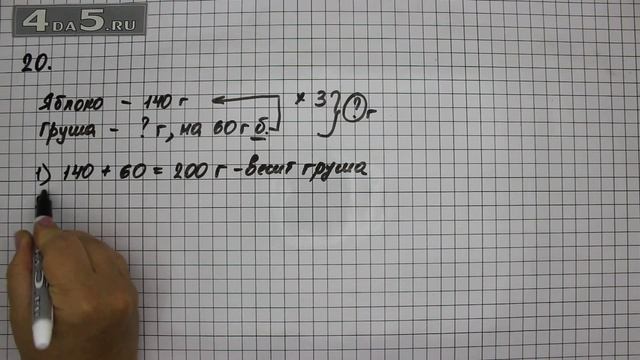 4DA5.RU
20.
Яблоко – 140 г × 3
Груша – ? г, на 60 г б. ? г
1) 140 + 60 = 200 г – весит груша